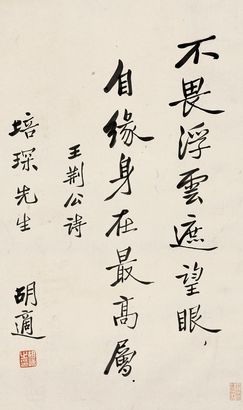 不畏浮雲遮望眼，
自緣身在最高層．
王荆公诗
培琛先生
胡適